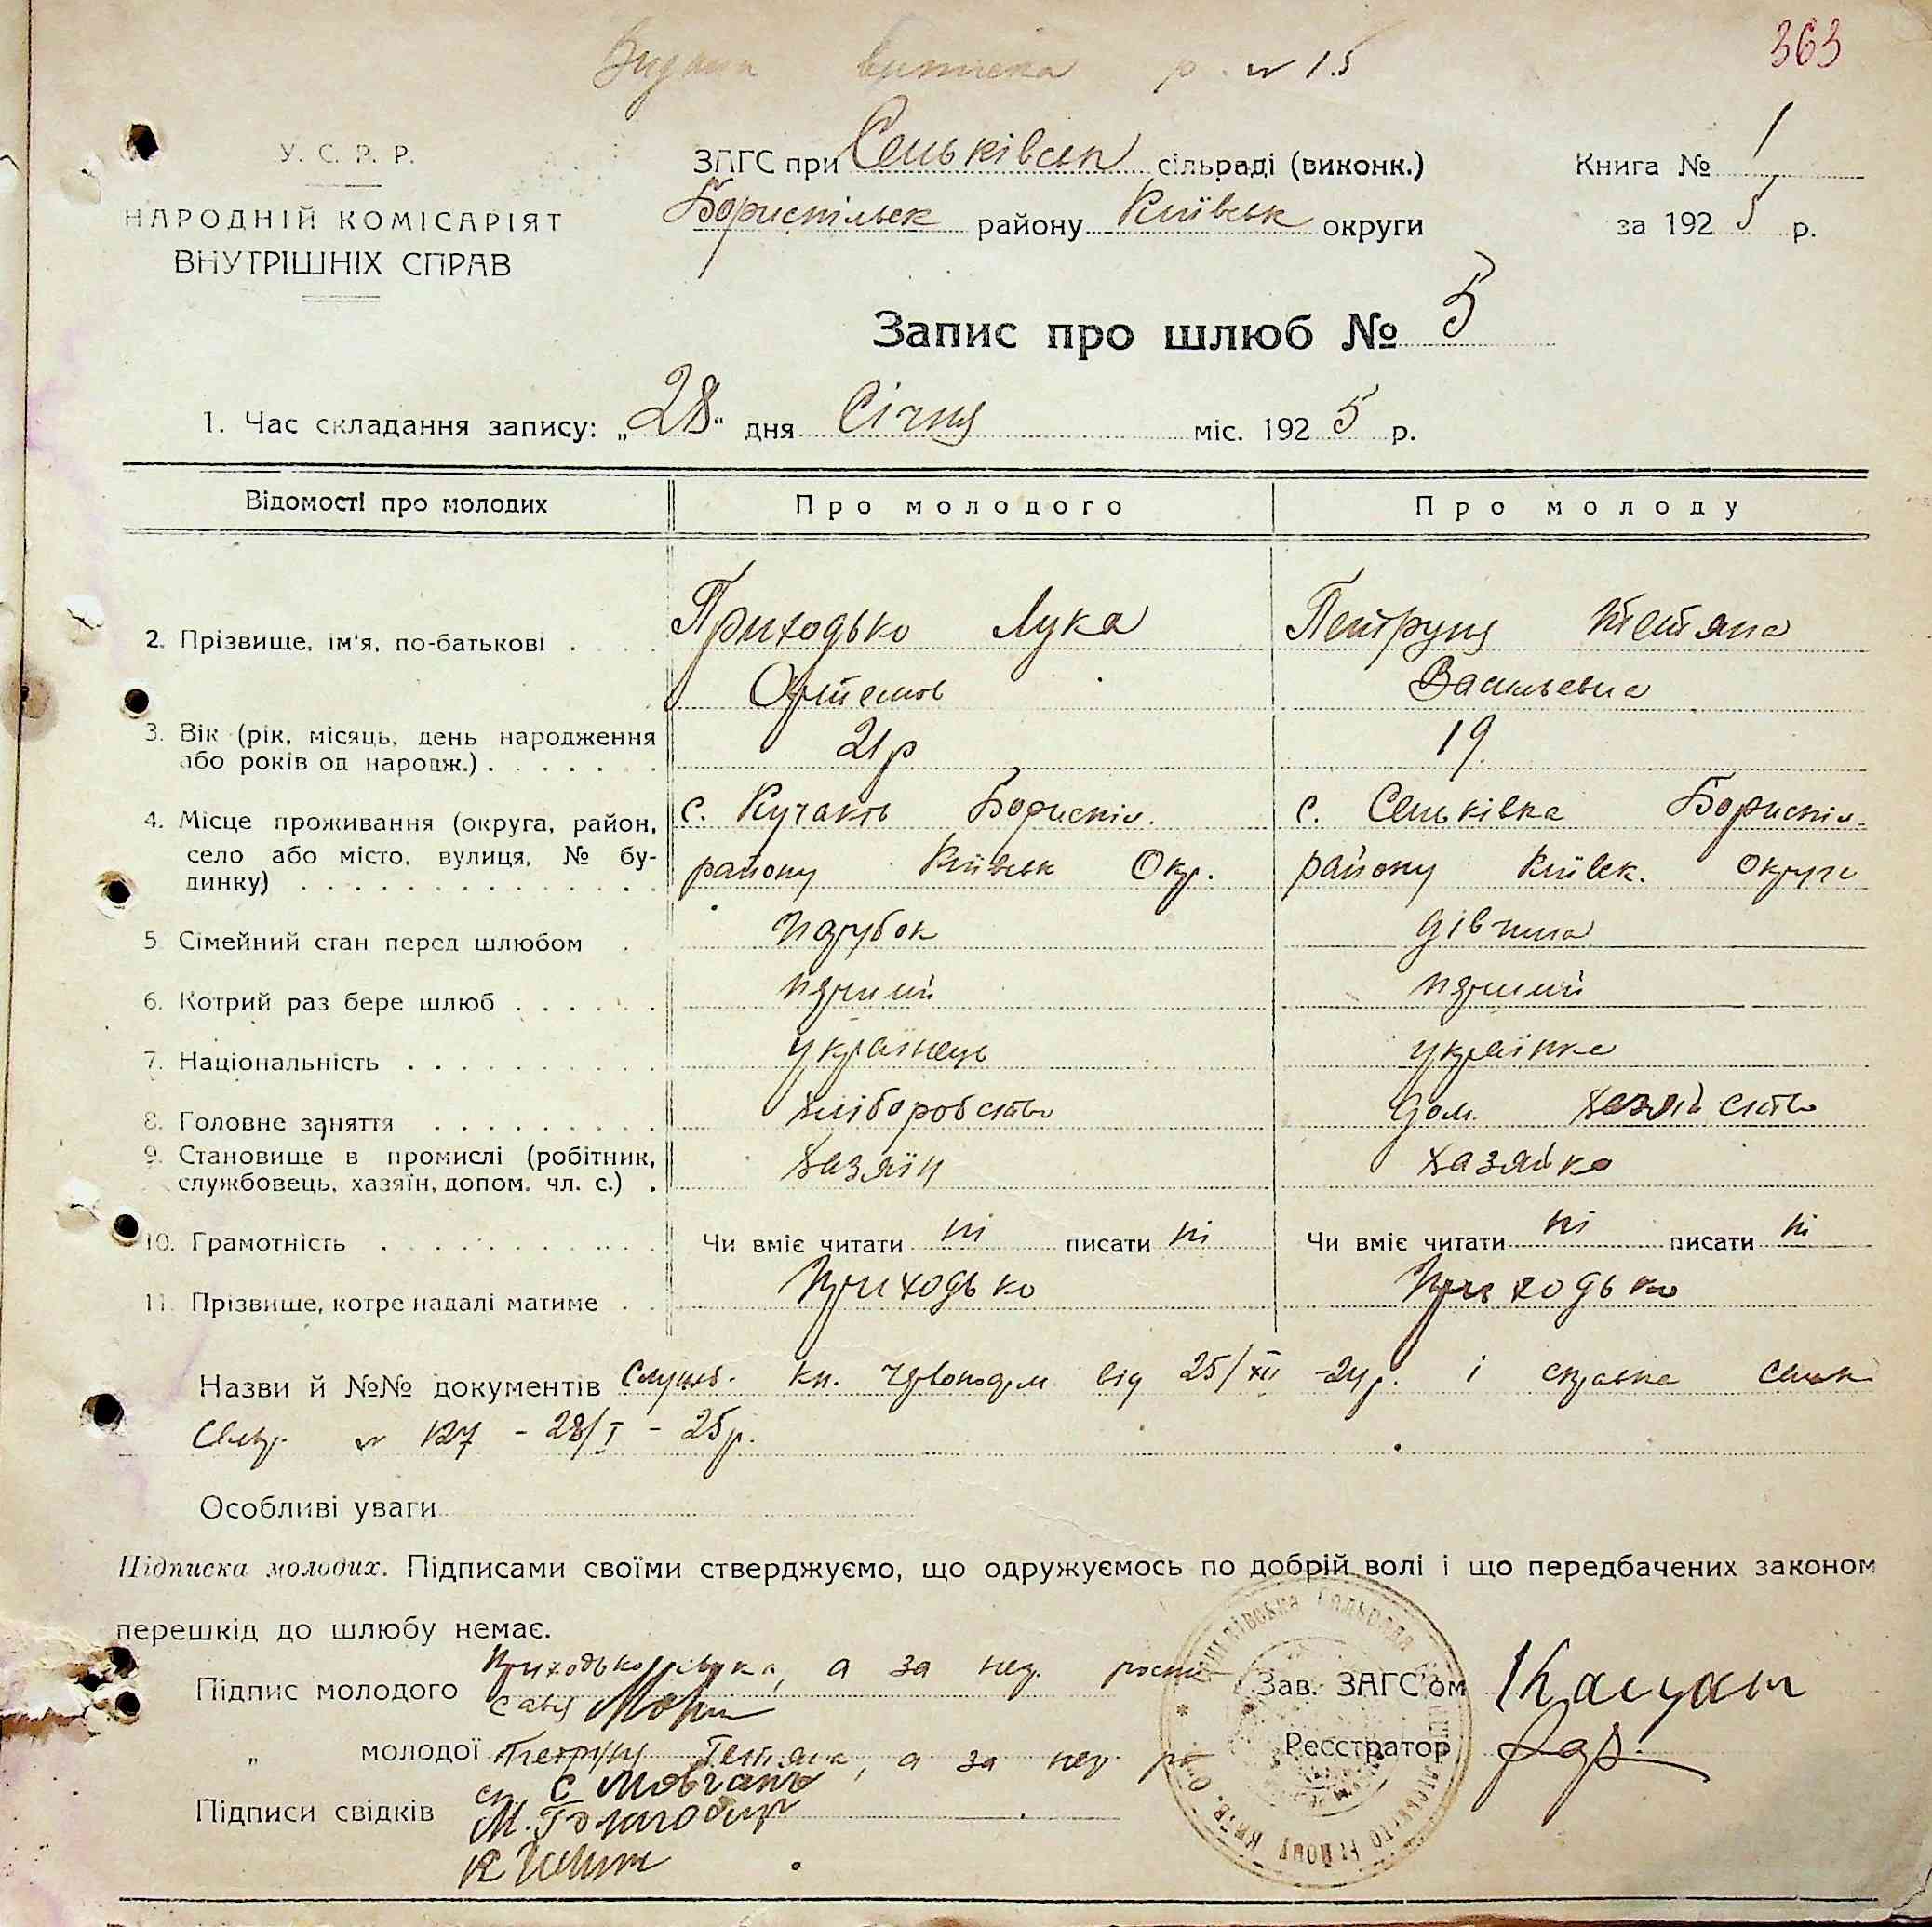 Видана виписка р. № 15
363
У. С. Р. Р.
НАРОДНІЙ КОМІСАРІЯТ
ВНУТРІШНІХ СПРАВ
ЗАГС при Сеньківськ сільраді (виконк.)
Бориспільськ району Київськ округи
Книга № 1
за 1925 р.
Запис про шлюб № 5
1. Час складання запису: „28“ дня Січня міс. 1925 р.
Відомості про молодих Про молодого Про молоду
2. Прізвище, ім'я, по-батькові Приходько Лука Петруня Тетяна
Артемов Васильевна
3. Вік (рік, місяць, день народження
або років од народж.) 21р 19
4. Місце проживання (округа, район, с. Кучаків Бориспіл. с. Сеньківка Бориспіл.
село або місто, вулиця, № бу-
динку) району Київськ Окр. району Київськ. Округи
5 Сімейний стан перед шлюбом парубок дівчина
6. Котрий раз бере шлюб перший перший
7. Національність українець українка
8. Головне заняття хліборобство дом. хазяйство
9. Становище в промислі (робітник,
службовець, хазяїн, допом. чл. с.) хазяїн хазяйка
10. Грамотність Чи вміє читати ні писати ні Чи вміє читати ні писати ні
11. Прізвище, котре надалі матиме Приходько Приходько
Назви й №№ документів Служб. кн. червоноарм від 25/XII -24р. і справка
№ 127 - 28/I - 25р.
Особливі уваги
Підписка молодих. Підписами своїми стверджуємо, що одружуємось по добрій волі і що передбачених законом
перешкід до шлюбу немає.
Підпис молодого Приходько Лука, а за нег.
„ молодої Петруня Тетяна, а за нег.
С Мовчан
Підписи свідків
Зав. ЗАГС'ом
Реєстратор
СЕНЬКІВСЬКА СІЛЬРАДА БОРИСПІЛЬСЬКОГО РАЙОНУ КИЇВ. ОКР.